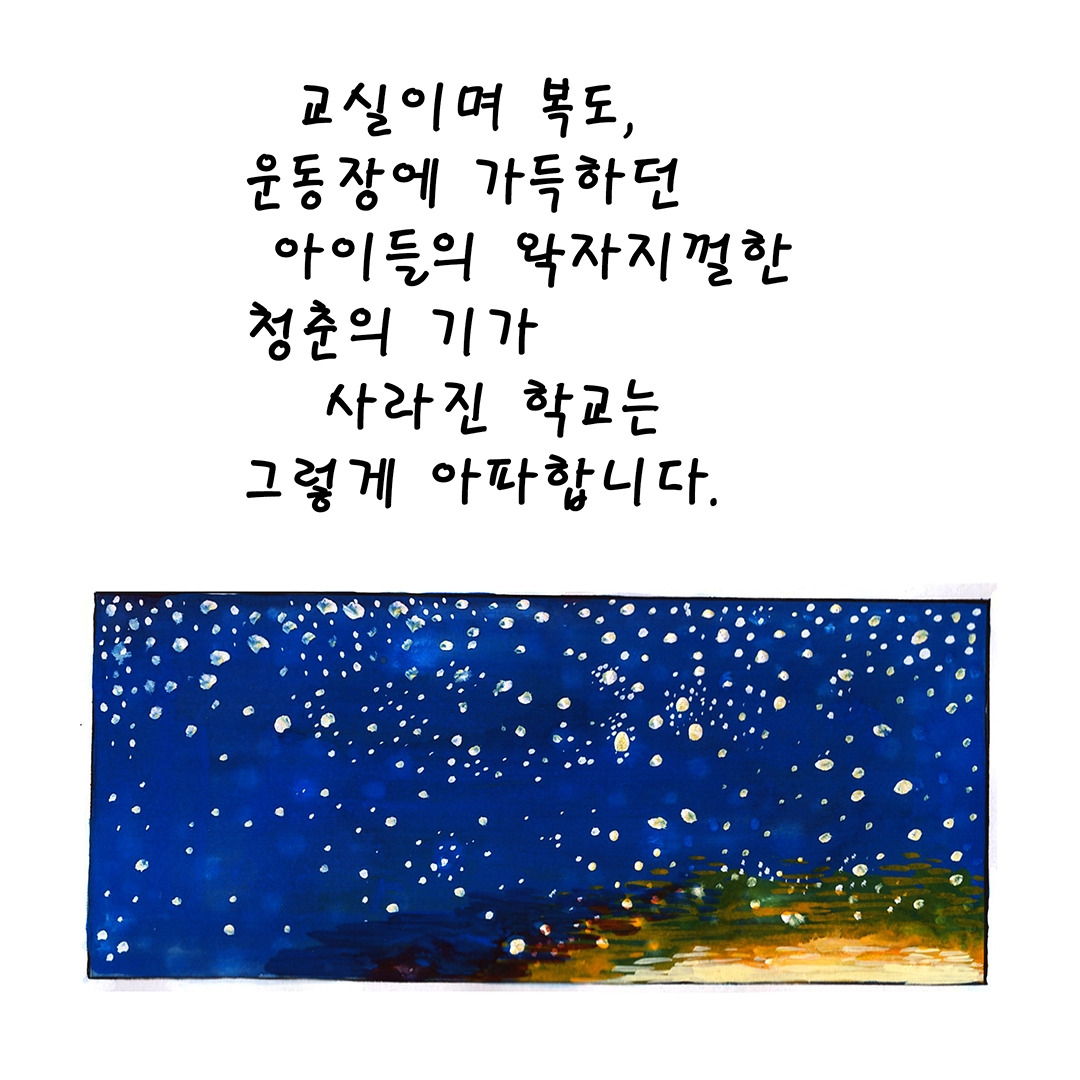 교실이며 복도,
운동장에 가득하던
아이들의 왁자지껄한
청춘의 기가
사라진 학교는
그렇게 아파합니다.